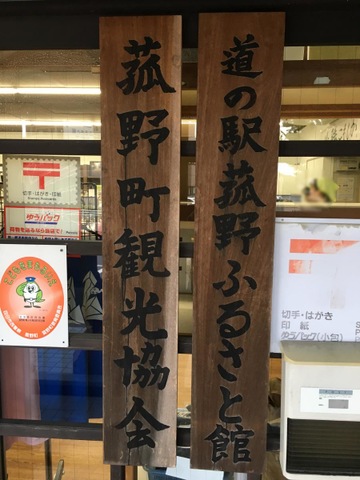 道の駅菰野ふるさと館
菰野町観光協会
切手・はがき・印紙
ゆうパック
切手・はがき
印紙
ゆうパック(小包)